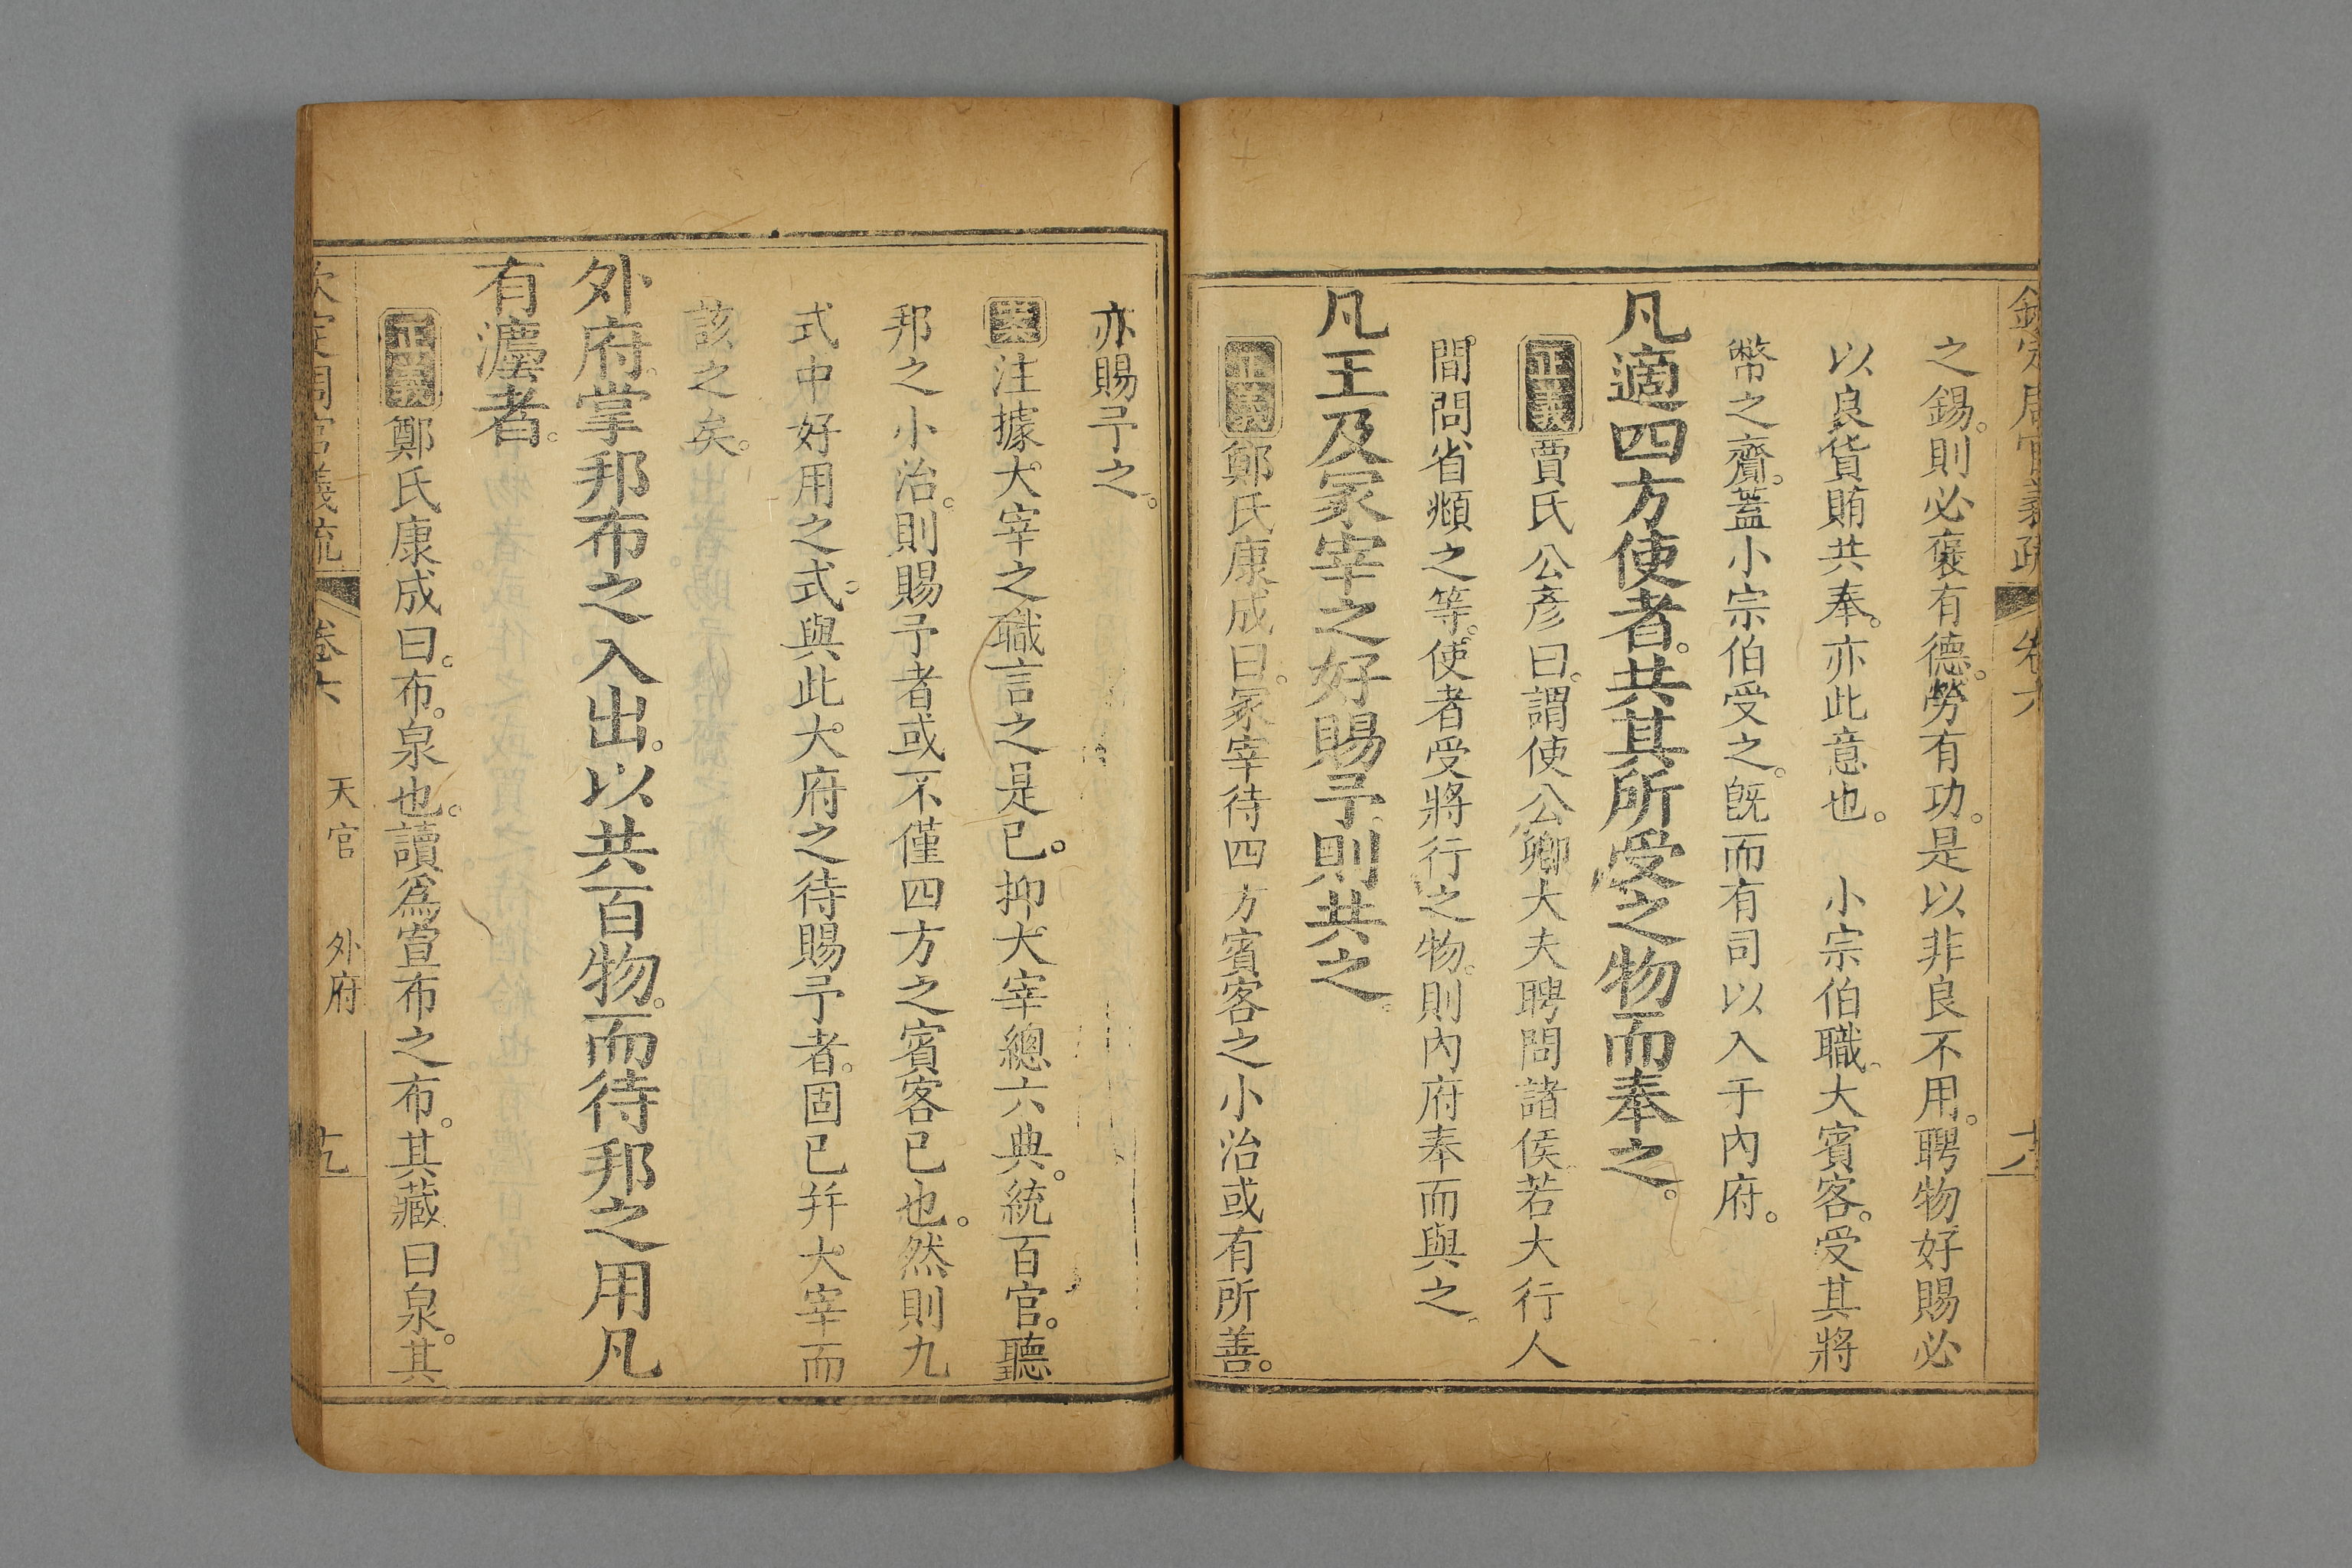 欽定周官義疏 卷六 十八
之錫。則必褒有德。勞有功。是以非良不用。聘物好賜必
以良貨賄共奉。亦此意也。 小宗伯職。大賓客。受其將
幣之齎。蓋小宗伯受之。旣而有司以入于內府。
凡適四方使者。共其所受之物而奉之。
正義 賈氏公彥曰。謂使公卿大夫聘問諸侯若大行人
間問省頫之等。使者受將行之物。則內府奉而與之。
凡王及冢宰之好賜予則共之。
正義 鄭氏康成曰。冢宰待四方賓客之小治或有所善。
亦賜予之。
案 注據大宰之職言之是已。抑大宰總六典。統百官。聽
邦之小治。則賜予者或不僅四方之賓客已也。然則九
式中好用之式。與此大府之待賜予者。固已幷大宰而
該之矣。
外府。掌邦布之入出。以共百物。而待邦之用凡
有灋者。
正義 鄭氏康成曰。布。泉也。讀爲宣布之布。其藏曰泉。其
欽定周官義疏 卷六 天官 外府 十九